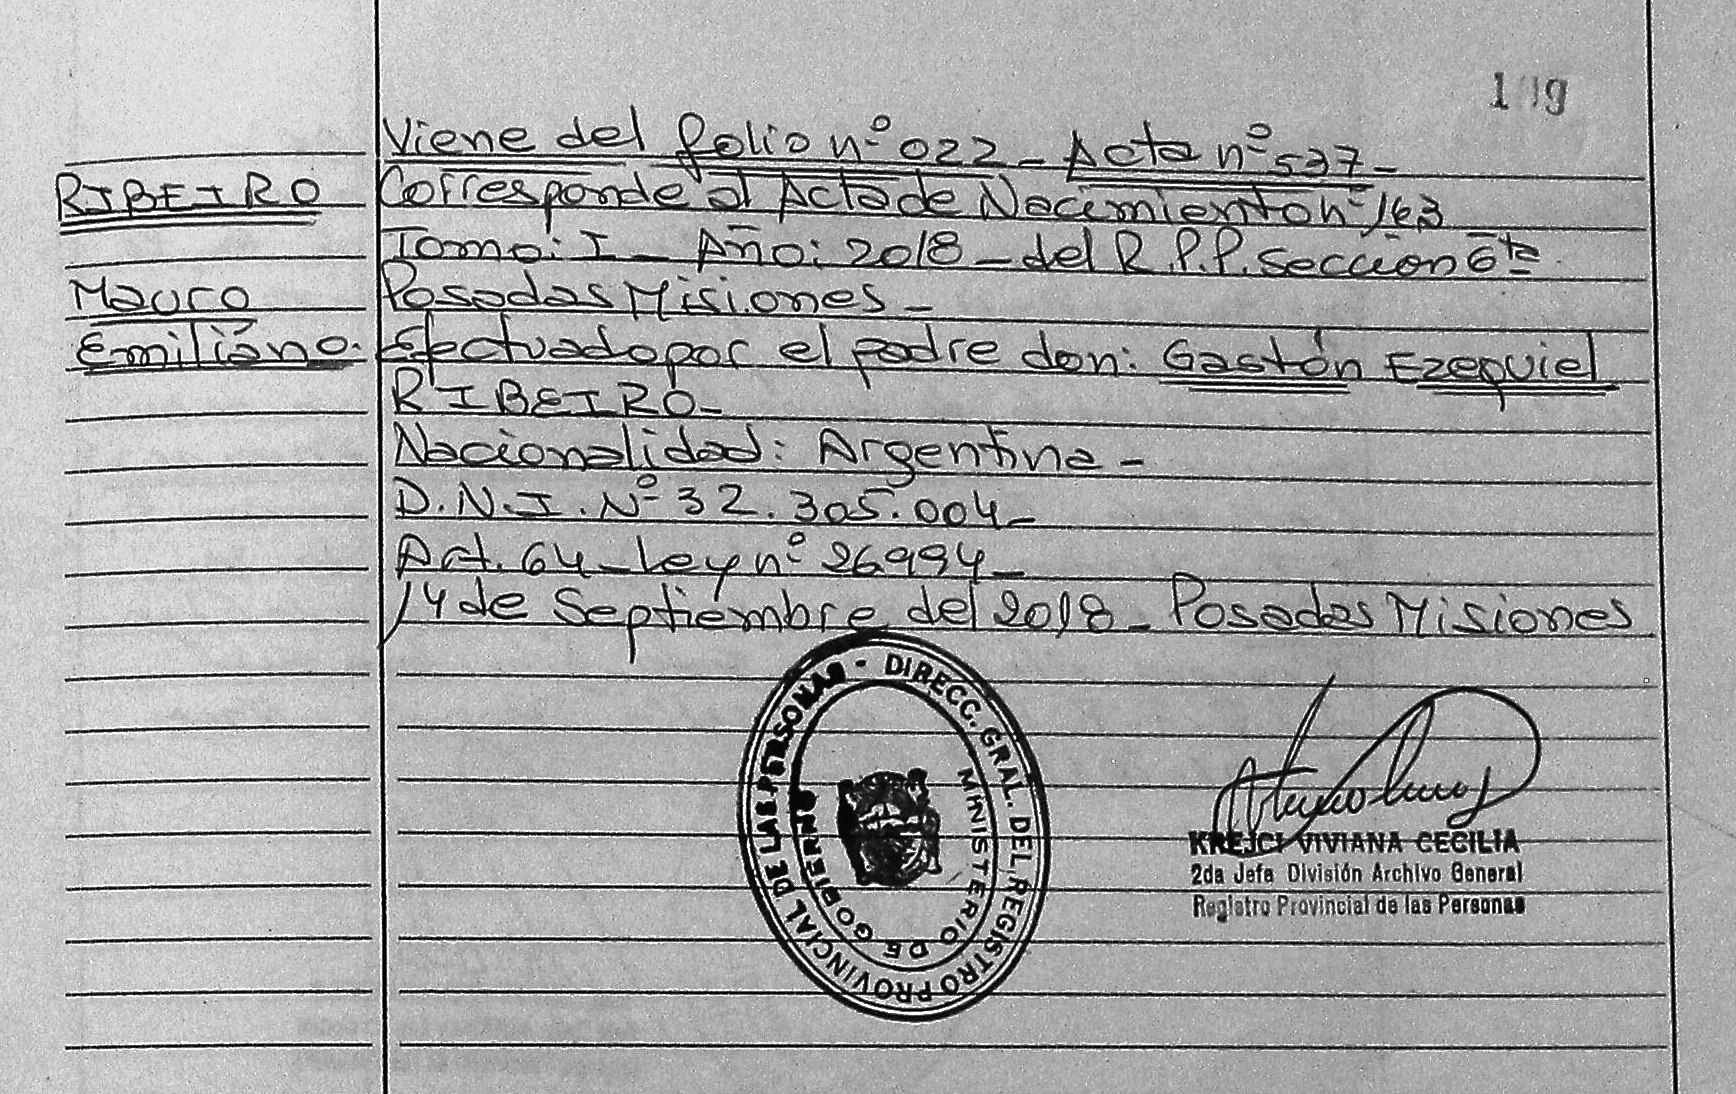 Viene del folio nº 022 - Acta nº 537 -
RIBEIRO
Corresponde al Acta de Nacimiento nº 163
Tomo: I - Año: 2018 - del R.P.P. Sección 6ta
Mauro
Posadas Misiones -
Emiliano.
Efectuado por el padre don: Gastón Ezequiel
RIBEIRO -
Nacionalidad: Argentina -
D.N.I. Nº 32.305.004 -
Art. 64 - ley nº 26994 -
14 de Septiembre del 2018 - Posadas Misiones
DIRECC. GRAL. DEL REGISTRO PROVINCIAL DE LAS PERSONAS -
MINISTERIO DE GOBIERNO
KREJCI VIVIANA CECILIA
2da Jefa División Archivo General
Registro Provincial de las Personas